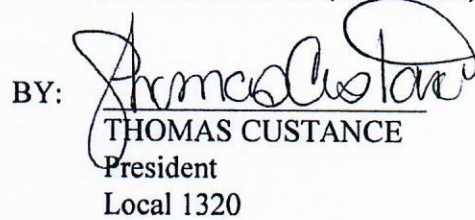 BY: Thomas Custance
THOMAS CUSTANCE
President
Local 1320